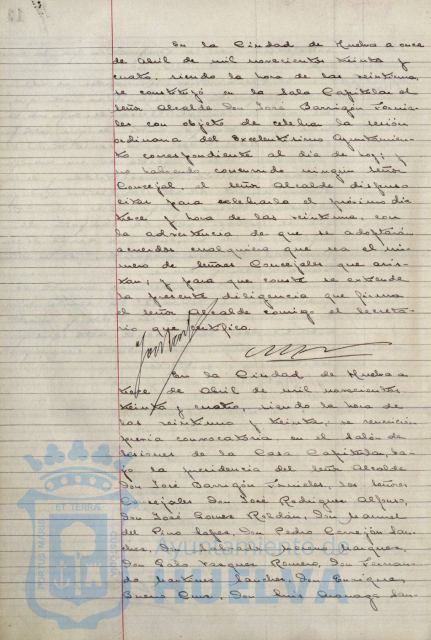 En la Ciudad de Huelva a once
de Abril de mil novecientos treinta y
cuatro, siendo la hora de las veintiuna,
se constituyó en la Sala Capitular el
señor Alcalde Don José Barrigón Fornie-
les con objeto de celebrar la sesión
ordinaria del Excelentísimo Ayuntamien-
to correspondiente al día de hoy, y
no habiendo concurrido ningún señor
Concejal, el señor Alcalde dispuso
citar para celebrarla el próximo día
trece y hora de las veintiuna, con
la advertencia de que se adoptarán
acuerdos cualquiera que sea el nú-
mero de señores Concejales que asis-
tan; y para que conste se extiende
la presente diligencia que firma
el señor Alcalde conmigo el Secreta-
rio que certifico.
En la Ciudad de Huelva a
trece de Abril de mil novecientos
treinta y cuatro, siendo la hora de
las veintiuna y treinta, se reunieron
previa convocatoria en el Salón de
Sesiones de la Casa Capitular, ba-
jo la presidencia del señor Alcalde
Don José Barrigón Fornieles, los señores
Concejales Don José Rodríguez Alfonso,
Don José Gómez Roldán, Don Manuel
del Pino López, Don Pedro Cerrejón San-
chez, Don Márquez,
Don Vázquez Romero, Don Fernan-
do Sánchez, Don Enrique
Bueno Cruz, Don Luis San-
PORTUS MARIS ET TERRAE
Ayuntamiento de
HUELVA